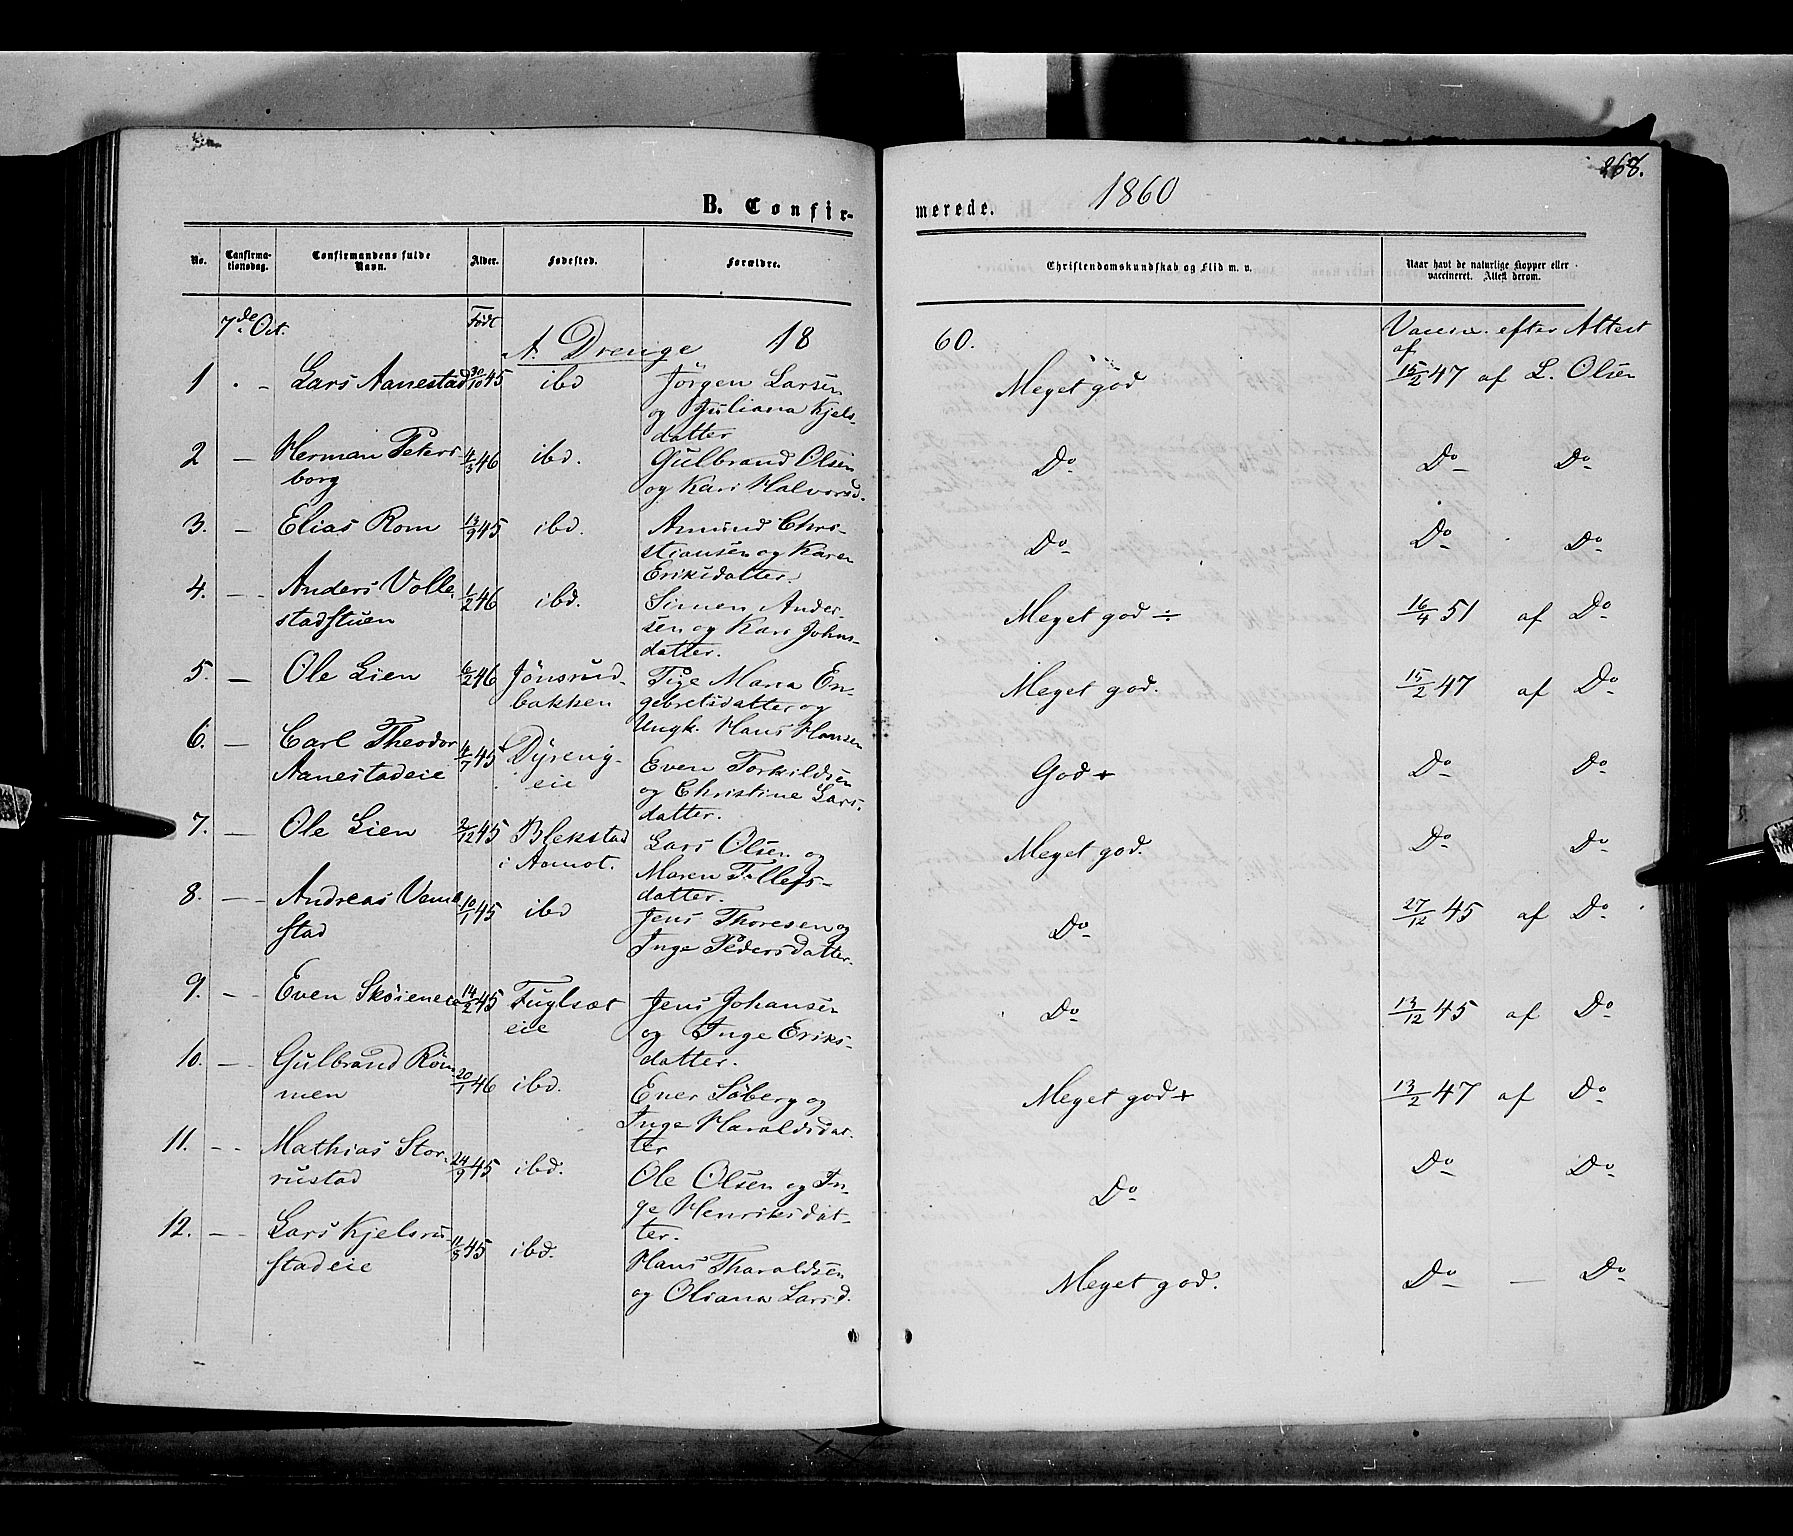 268.
B. Confir-
merede.
1860
No.
Confirma-
tionsdag.
Confirmandens fulde
Navn.
Alder.
Fødested.
Forældre.
Christendomskundskab og Flid m. v.
Naar havt de naturlige Kopper eller
vaccineret. Attest derom.
7de Oct.
Født
A. Drenge 18
60.
Vaccin. efter Attest
af
1 Lars Aanestad 30/10 45 ibd Jörgen Larsen
og Juliana Kjels-
datter
Meget god
15/2 47 af L. Olsen
2 Herman Peters-
borg
4/3 46 ibd. Gulbrand Olsen
og Kari Halvorsd.
Do
Do Do
3. Elias Rom 13/9 45 ibd. Amund Chri-
stiansen og Karen
Eriksdatter.
Do
Do Do
4. Anders Volle-
stadstuen
1/2 46 ibd. Simen Ander-
sen og Kari Johns-
datter.
Meget god ÷
16/4 51 af Do
5. Ole Lien 6/2 46 Jönsrud-
bakken
Pige Maria En-
gebretsdatter og
Ungk. Hans Hansen
Meget god.
15/2 47 af Do
6. Carl Theodor
Aanestadeie
4/7 45 Dyreng-
eie
Even Torkildsen
og Christine Lars-
datter.
God +
Do Do
7. Ole Lien 2/12 45 Blekstad
i Aamot.
Lars Olsen og
Maren Tollefs-
datter.
Meget god.
Do Do
8. Andreas Vem-
stad
10/1 45 ibd
Jens Thoresen og
Inge Pedersdatter.
Do
27/12 45 af Do
9. Even Sköieneie 14/2 45 Fuglset
eie
Jens Johansen
og Inge Eriks-
datter.
Do
13/12 45 af Do
10. Gulbrand Röm-
men
20/1 46 ibd.
Ener Söberg og
Inge Haraldsdat-
ter
Meget god +
13/2 47 af Do
11. Mathias Stor-
rustad
24/9 45 ibd.
Ole Olsen og In-
ge Henriksdat-
ter.
Do
Do Do
12. Lars Kjelsru-
stadeie
45 ibd.
Hans Tharaldsen
og Oliana Larsd.
Meget god.
Do — Do